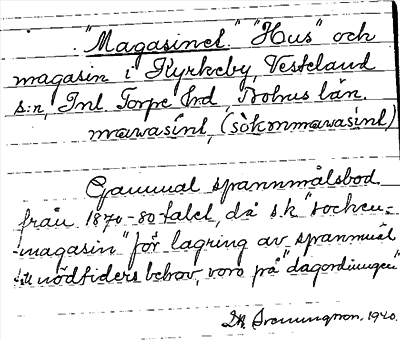 "Magasinet." "Hus" och
magasin i Kyrkeby, Vesteland
s:n, Inl Torpe Hrd, Bohus län.
mawasint, (sòkmmawasint)
Gammal spannmålsbod
från 1870-80 talet, då s.k "socken=
-magasin" för lagring av spanmål
till nödtiders behov, voro på "dagordningen"
1940.